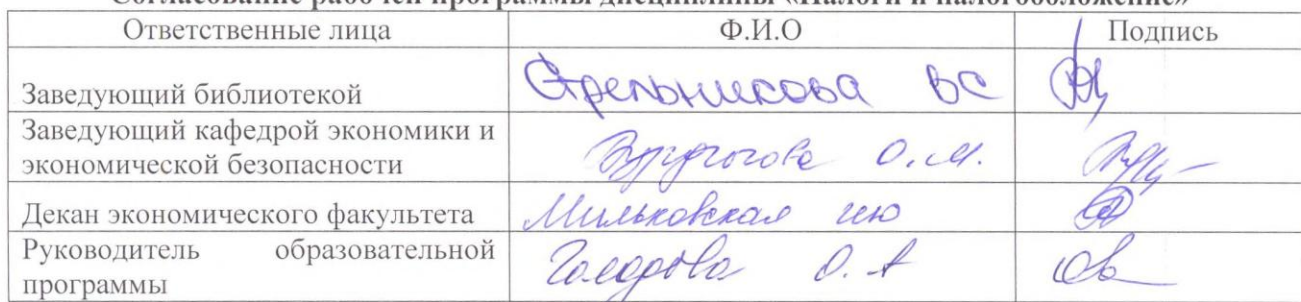 Согласование рабочей программы дисциплины «Налоги и налогообложение»
Ответственные лица Ф.И.О Подпись
Заведующий библиотекой Стрельникова ВС
Заведующий кафедрой экономики и
экономической безопасности О.М.
Декан экономического факультета Мильковская ию
Руководитель образовательной
программы О.А